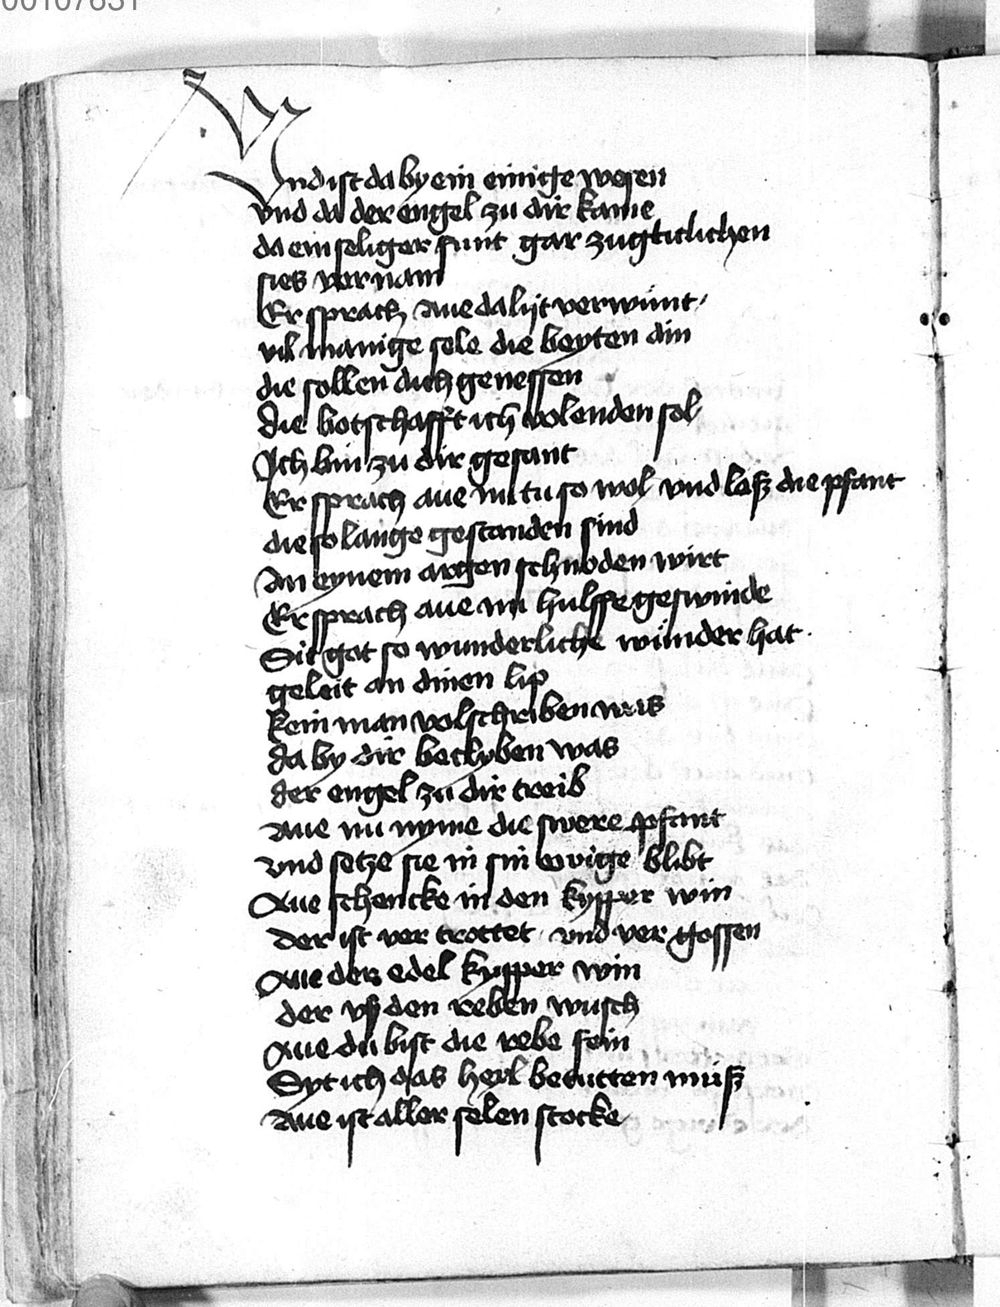 00107831
Vnd ist da by ein einige wesen
vnd da der engel zu dir kame
da ein seliger funt gar zugticlichen
sies ver nam
Er sprach aue da lijt verwunt
vil manige sele die beyten din
die sollen dich genessen
die botschafft ich volenden sol
Ich bin zu dir gesant
Er sprach aue nu tu so wol vnd loß die pfant
die so lange gestanden sind
An eynem argen schnoden wirt
Er sprach aue nu hulffe geswinde
Sit got so wunderliche wunder hat
geleit an dinen lip
kein man volschriben was
da by dir beclyben was
der engel zu dir treib
Aue nu nyme die swere pfant
vnd setze sie in sin ewige blibt
Aue schencke in den kypper win
der ist ver trottet vnd ver gossen
Aue der edel kypper win
der vß den reben wusch
Aue du bist die rebe fein
Syt ich das heyl betutten muß
Aue ist aller selen stocke